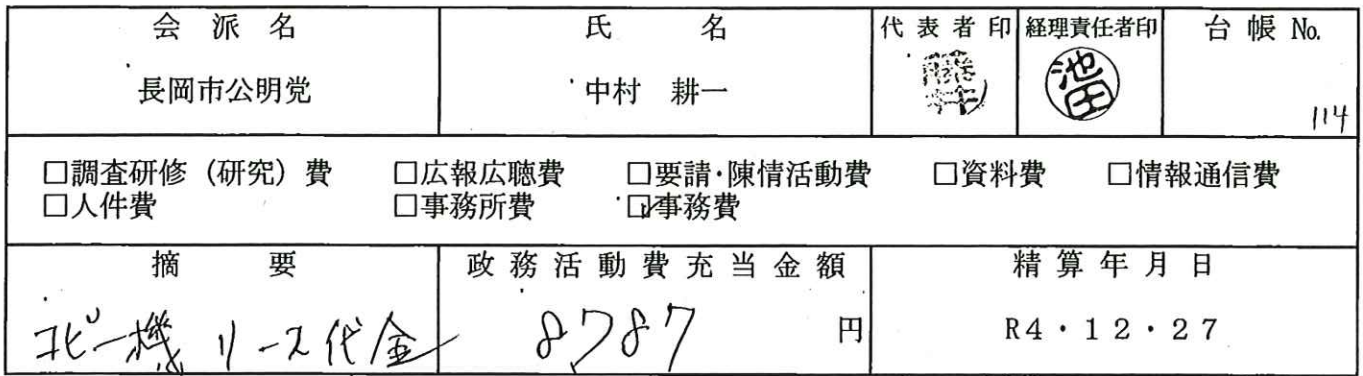 会派名 氏名 代表者印 経理責任者印 台帳No.
長岡市公明党 中村 耕一 池田 114
□調査研修（研究）費 □広報広聴費 □要請・陳情活動費 □資料費 □情報通信費
□人件費 □事務所費 ☑事務費
摘要 政務活動費充当金額 精算年月日
コピー機リース代金 8787 円 R4・12・27